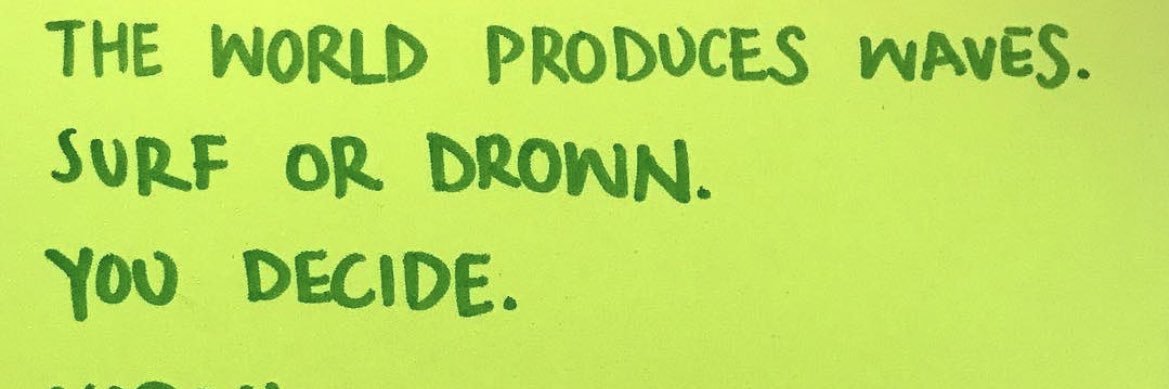 THE WORLD PRODUCES WAVES.
SURF OR DROWN.
YOU DECIDE.